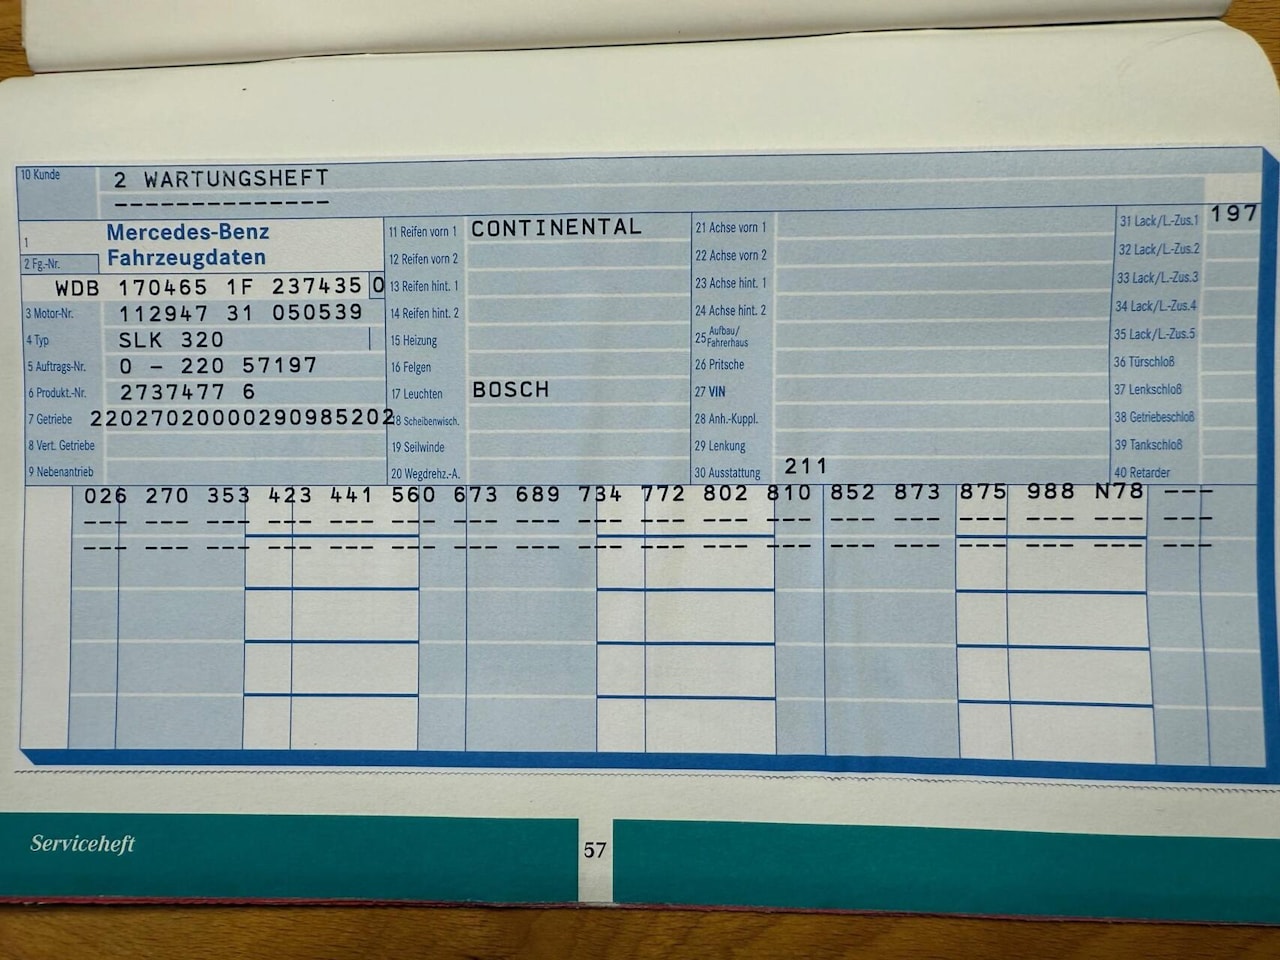 10 Kunde 2 WARTUNGSHEFT
--------------
1 Mercedes-Benz
Fahrzeugdaten
2 Fg.-Nr.
WDB 170465 1F 237435 0
3 Motor-Nr. 112947 31 050539
4 Typ SLK 320
5 Auftrags-Nr. 0 - 220 57197
6 Produkt.-Nr. 2737477 6
7 Getriebe 22027020000290985202
8 Vert. Getriebe
9 Nebenantrieb
11 Reifen vorn 1 CONTINENTAL
12 Reifen vorn 2
13 Reifen hint. 1
14 Reifen hint. 2
15 Heizung
16 Felgen
17 Leuchten BOSCH
18 Scheibenwisch.
19 Seilwinde
20 Wegdrehz.-A.
21 Achse vorn 1
22 Achse vorn 2
23 Achse hint. 1
24 Achse hint. 2
25 Aufbau/
Fahrerhaus
26 Pritsche
27 VIN
28 Anh.-Kuppl.
29 Lenkung
30 Ausstattung 211
31 Lack/L.-Zus.1 197
32 Lack/L.-Zus.2
33 Lack/L.-Zus.3
34 Lack/L.-Zus.4
35 Lack/L.-Zus.5
36 Türschloß
37 Lenkschloß
38 Getriebeschloß
39 Tankschloß
40 Retarder
026 270 353 423 441 560 673 689 734 772 802 810 852 873 875 988 N78 ---
--- --- --- --- --- --- --- --- --- --- --- --- --- --- --- --- --- ---
--- --- --- --- --- --- --- --- --- --- --- --- --- --- --- --- --- ---
Serviceheft
57